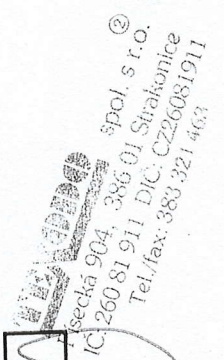 spol. s r.o. ②
Písecká 904, 386 01 Strakonice
IČ: 260 81 911 DIČ: CZ26081911
Tel./fax: 383 321 463